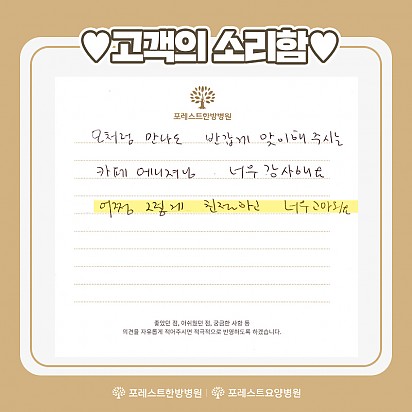 ♥고객의 소리함♥
포레스트한방병원
오처럼 만나도 반갑게 맞이해 주시는
카페 매니져님 너무 감사해요
어쩜 그렇게 친절하고 너무 고마워요
좋았던 점, 아쉬웠던 점, 궁금한 사항 등
의견을 자유롭게 적어주시면 적극적으로 반영하도록 하겠습니다.
포레스트한방병원 | 포레스트요양병원